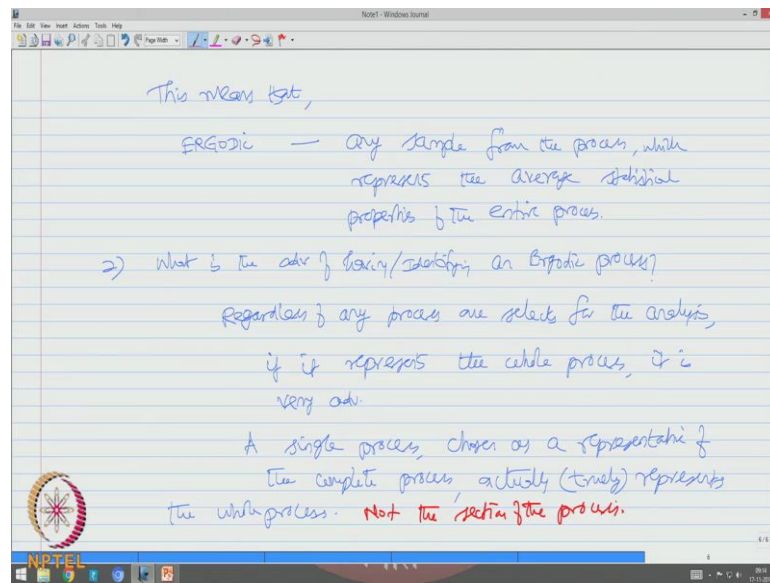 Note1 - Windows Journal
File Edit View Insert Actions Tools Help
Page Width
This means that,
ERGODIC — any sample from the process, which
represents the average statistical
properties of the entire process.
2) What is the adv of having/Identifying an Ergodic process?
Regardless of any process one selects for the analysis,
if it represents the whole process, it is
very adv.
A single process, chosen as a representative of
the complete process, actually (truely) represents
the whole process. Not the section of the process.
NPTEL
6/6
6
09:14